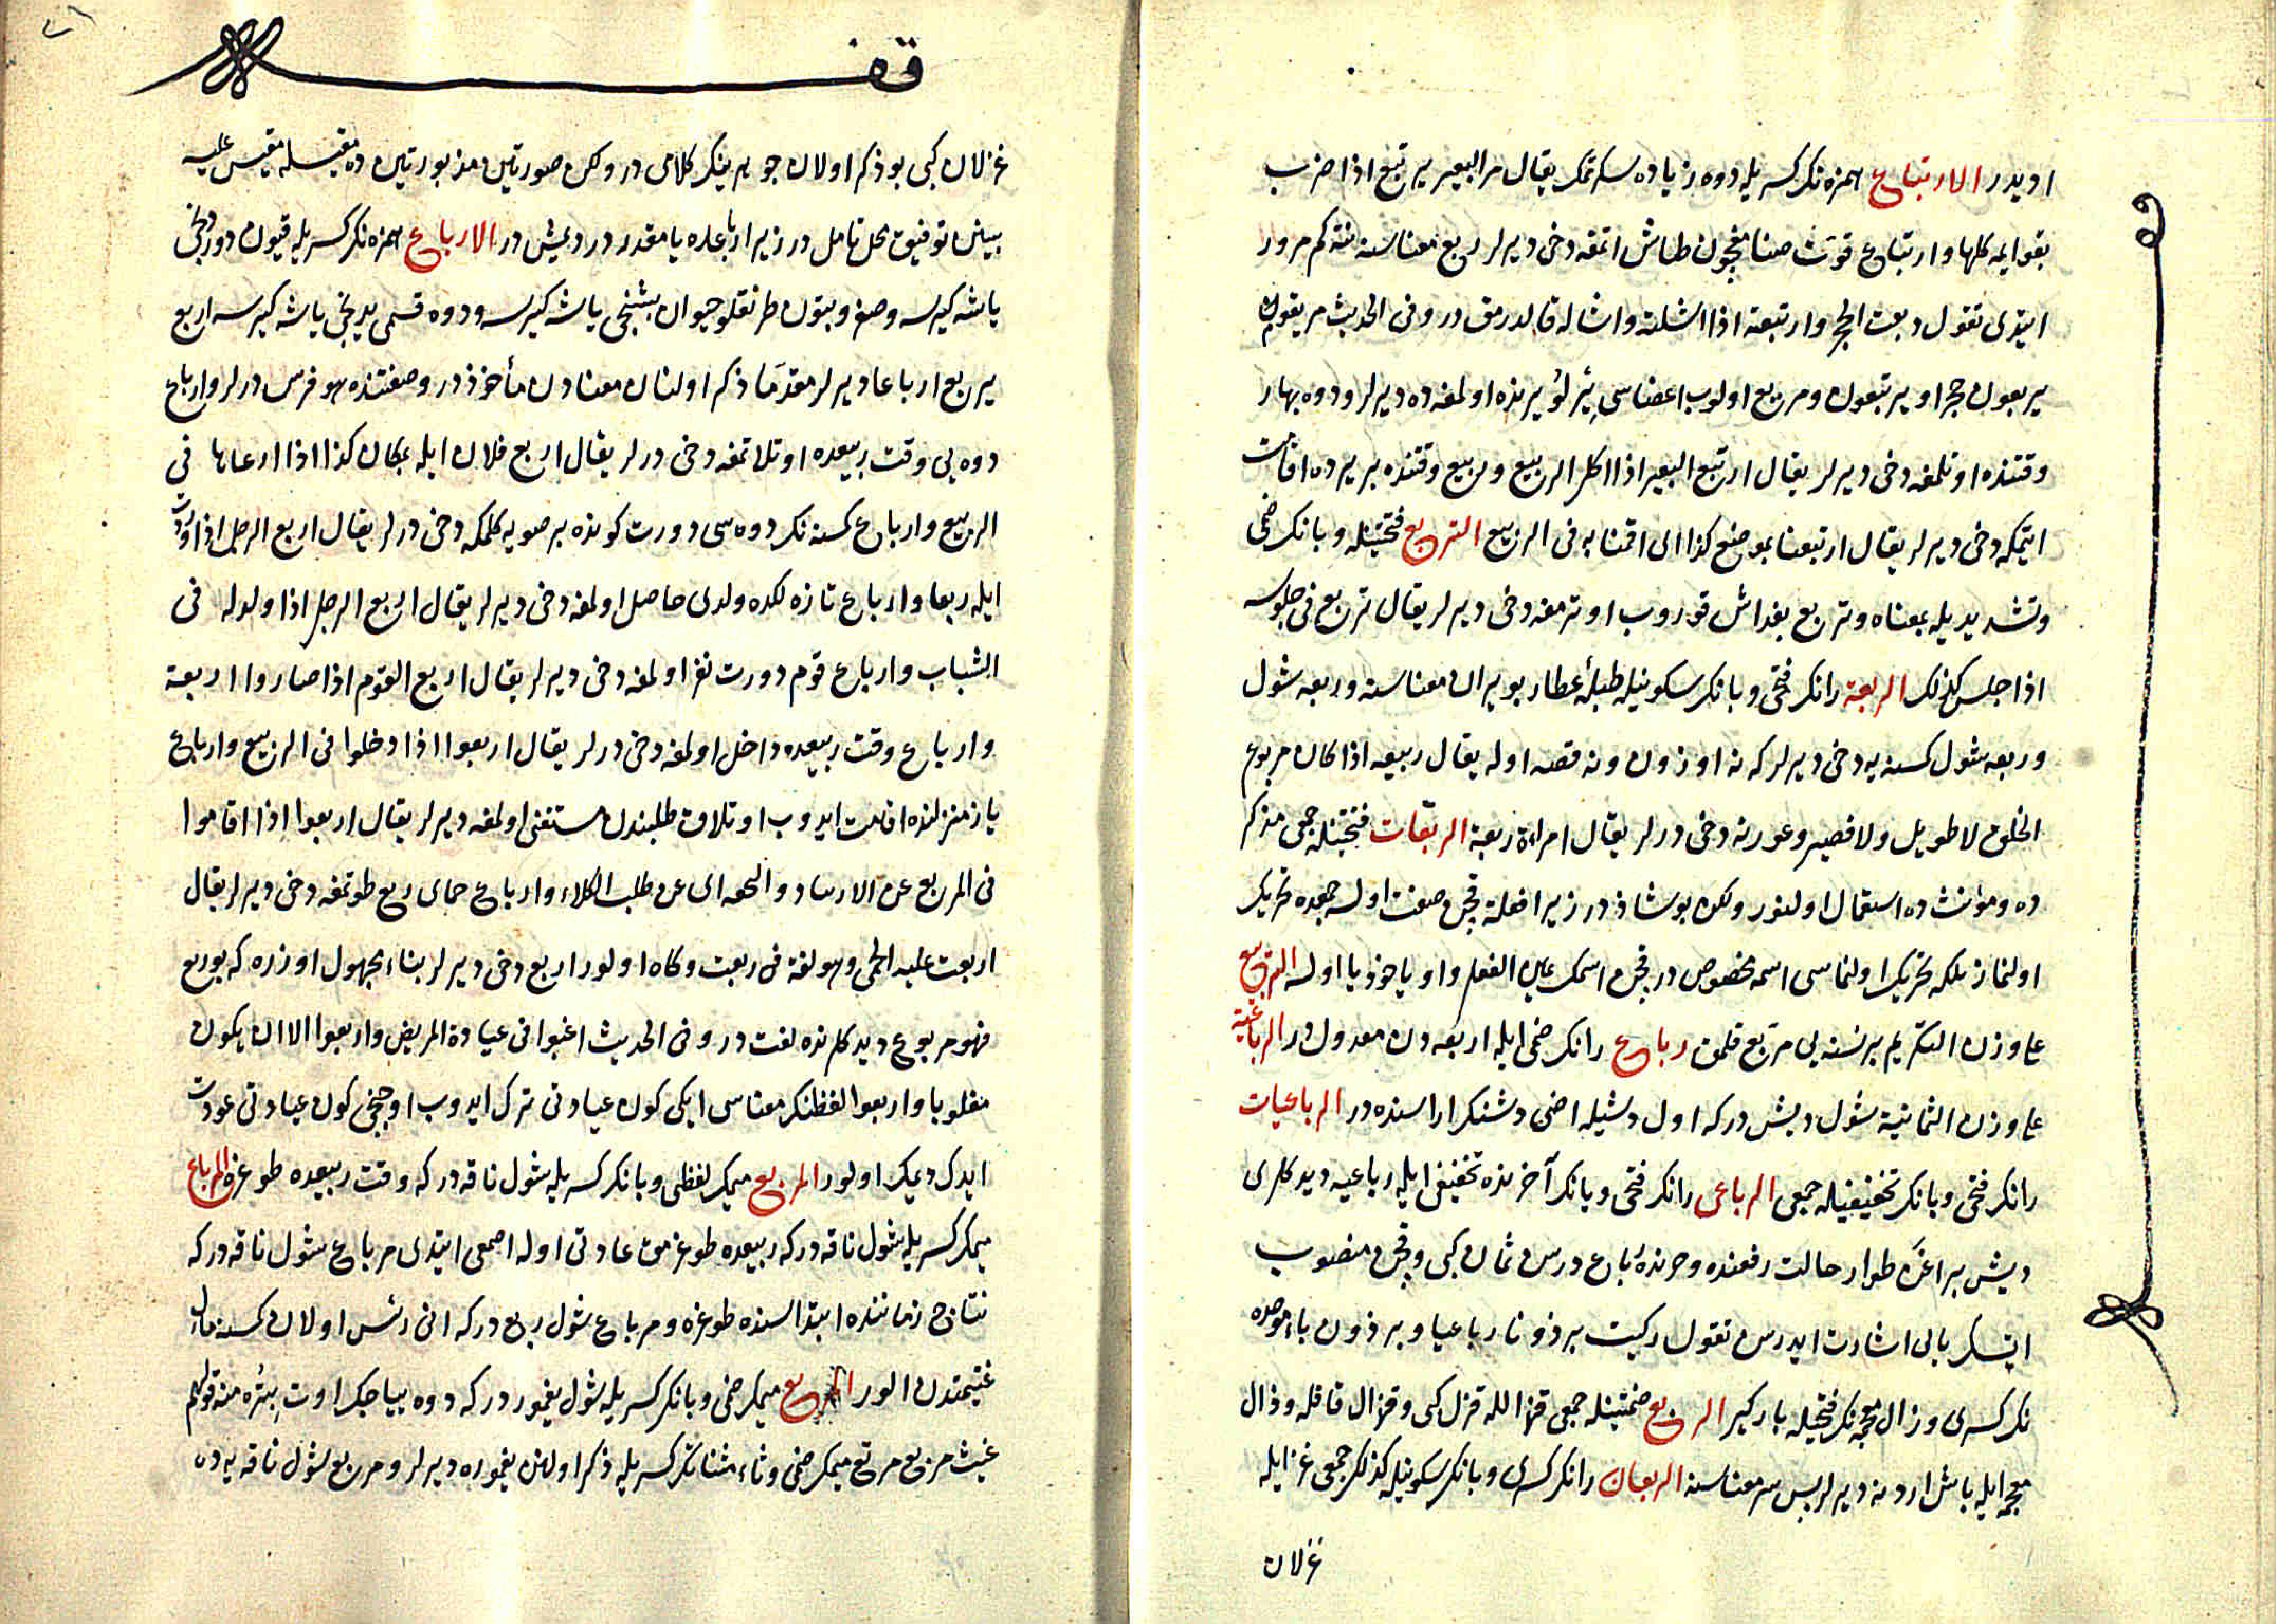 ايدر الارتباع همزه نك كسريله دوه زياده سكرتمك يقال مر البعير يرتبع اذا ضرب
بقوايمه كلها وارتباع قوت صنامغيچون طاش اتمغه دخی ديرلر ربع معناسنه نته كم مرور
ايتدی تقول ربعت الحجر وارتبعته اذا اشلته واشاله قالدرمق در وفی الحديث مر بقوم
يربعون حجرا ويرتبعون ومربع اولوب اعضاسی يرلو يرنده اولمغه ده ديرلر ودوه بهار
وقتنده اوتلمغه دخی ديرلر يقال ارتبع البعير اذا اكل الربيع وربيع وقتنده بر يرده اقامت
ايتمكه دخی ديرلر يقال ارتبعنا بموضع كذا ای اقمنا به فی الربيع التربع فتحتينله وبانك ضمی
وتشديديله بمعناه وتربع بغداش قوروب اوترمغه دخی ديرلر يقال تربع فی جلوسه
اذا جلس كذلك الربعة رانك فتحی وبانك سكونيله طبله عطار بويران معناسنه وربعه شول
وربعه شول كسنه يه دخی ديرلر كه نه اوزون ونه قصه اوله يقال ربعه اذا كان مربوع
الخلق لا طويل ولا قصير وعورته دخی درلر يقال امراءة ربعة الربعات فتحتينله جمعی مذكر
ده ومؤنث ده استعمال اولنور ولكن بو شاذ در زيرا فعلة قچن صفت اولسه جمعده تحريك
اولنماز بلكه تحريك اولنماسی اسمه مخصوص در قچن اسمك عين الفعلی واو ياخوذ يا اولسه التربيع
علی وزن التكريم بر نسنه يی مربع قلمق رباع رانك ضمی ايله اربعه دن معدول در الرباعية
علی وزن الثمانية شول ديش در كه اول ديشيله اضی ديشنك اراسنده در الرباعيات
رانك فتحی وبانك تخفيفيله جمعی الرباعی رانك فتحی ويانك آخرنده تخفيفی ايله رباعيه ديدكلری
ديش براغن طوار حالت رفعنده وجرنده رباع درسن ثمان كبی وقچن منصوب
ايتسك يايی اشارت ايدرسن تقول ركبت برذونا رباعيا وبرذون باء موحده
نك كسری وذال معجمه نك فتحيله باركير الربع ضمتينله جمعی قذال ايله قزل كبی وقذال قافله وذال
معجمه ايله باش اردنه ديرلر پس سر معناسنه الربعان رانك كسری وبانك سكونيله كذلك جمعی غزال ايله
غزلان
قف
غزلان كبی بو ذكر اولان جوهرينك كلامی در ولكن صورتين مزبورتين ده مقيسله مقيس عليه
بيننی توفيق محل تاملدر زيرا رباعده يا مقدر در ديمش در الارباع همزه نك كسريله قيون دوردنجی
ياشه كيرسه وصغر وبتون طرنقلو حيوان بشنجی ياشه كيرسه ودوه قسمی يدنجی ياشه كيرسه اربع
يربع ارباعا ديرلر مقدما ذكر اولنان معنادن مأخوذ در وصفتنده هو فرس درلر وارباع
دوه يی وقت ربيعده اوتلاتمغه دخی درلر يقال اربع فلان ابله بمكان كذا اذا ارعاها فی
الربيع وارباع كسنه نك دوه سی دورت كونده بر صويه كلمكه دخی درلر يقال اربع الرجل اذا وردت
ابله ربعا وارباع تازه لكده ولدی حاصل اولمغه دخی ديرلر يقال اربع الرجل اذا ولد له فی
الشباب وارباع قوم دورت نفر اولمغه دخی ديرلر يقال اربع القوم اذا صاروا اربعة
وارباع وقت ربيعده داخل اولمغه دخی درلر يقال اربعوا اذا دخلوا فی الربيع وارباع
ياز منزلنده اقامت ايدوب اوتلاق طلبندن مستغنی اولمغه ديرلر يقال اربعوا اذا اقاموا
فی المربع عن الارتياد والنجعه ای عن طلب الكلاء وارباع حمای ربع طوتمغه دخی ديرلر يقال
اربعت عليه الحمی وهو لغة فی ربعت وگاه اولور اربع دخی ديرلر بناء مجهول اوزره كه بو ربع
فهو مربوع ديدكلرنده لغت در وفی الحديث اغبوا فی عيادة المريض واربعوا الا ان يكون
مغلوبا واربعوا لفظنك معناسی ايكی كون عيادتی ترك ايدوب اوچنجی كون عيادتی عودت
ايدك ديمك اولور المربع ميمك لفظی وبانك كسريله شول ناقه در كه وقت ربيعده طوغره المرباع
ميمك كسريله شول ناقه در كه ربيعده طوغرمق عادتی اوله اصمعی ايتدی مرباع شول ناقه در كه
نتاج زماننده ابتداسنده طوغره ومرباع شول ربع در كه انی رئس اولان كسنه مال
غنيمتدن الور المربع ميمك ضمی وبانك كسريله شول يغمور در كه دوه يياجك اوت بتره منه قولهم
غيث مربع مرتع ميمك ضمی وتاء مثناتك كسريله ذكر اولنن يغموره ديرلر ومربع شول ناقه يه ده